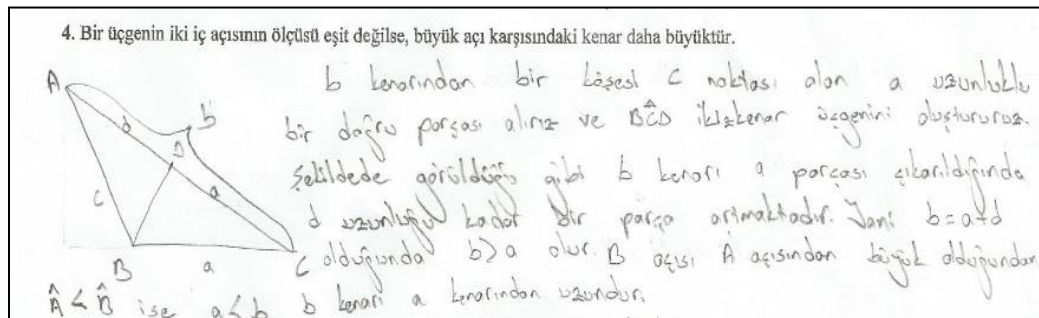 4. Bir üçgenin iki iç açısının ölçüsü eşit değilse, büyük açı karşısındaki kenar daha büyüktür.
b kenarından bir köşesi C noktası olan a uzunluklu
bir doğru parçası alırız ve BĈD ikizkenar üçgenini oluştururuz.
Şekildede görüldüğü gibi b kenarı a parçası çıkarıldığında
d uzunluğu kadar bir parça artmaktadır. Yani b=a+d
olduğunda b>a olur. B açısı A açısından büyük olduğundan
Â<B̂ ise a<b b kenarı a kenarından uzundur.
A
b
d
D
a
c
B
a
C